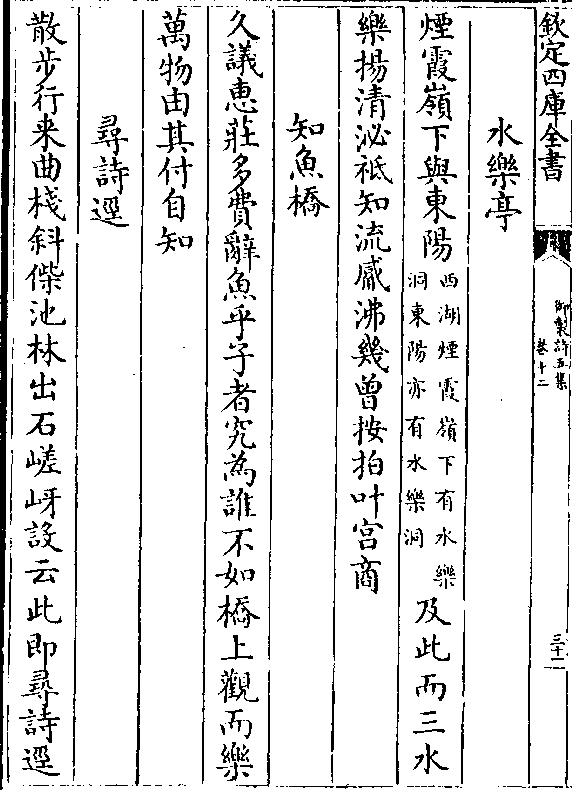 欽定四庫全書
御製詩五集
卷十二
三十一
水樂亭
煙霞嶺下與東陽西湖煙霞嶺下有水樂洞東陽亦有水樂洞及此而三水
樂揚清泌祗知流戚沸幾曾按拍叶宫商
知魚橋
久議惠莊多費辭魚乎子者究為誰不如橋上觀而樂
萬物由其付自知
尋詩逕
散步行来曲棧斜傑池林出石嵯岈設云此即尋詩逕